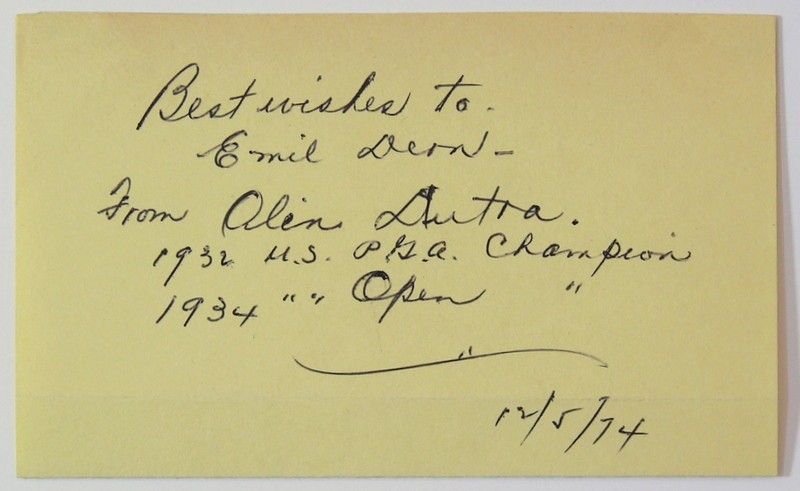 Best wishes to.
Emil Deon -
From Olin Dutra.
1932 U.S. P.G.A. Champion
1934 " " Open "
"
12/5/74